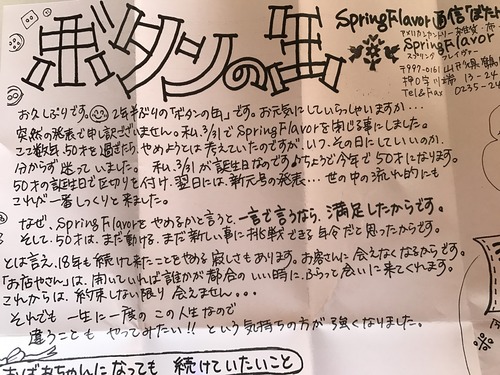 ボタンの缶
SpringFlavor通信「ぼた
アメリカンカントリー雑貨・
SpringFlavor
スプリング フレイバー
〒999-0161 山形県
Tel&Fax 0235-24
お久しぶりです。2年半ぶりの「ボタンの缶」です。お元気にしていらっしゃいますか…
突然の発表で申し訳ございません。私、3/31でSpringFlavorを閉じる事にしました。
ここ数年、50才を過ぎたら、やめようとは考えていたのですが、いつ、その日にしていいのか、
分からず迷っていました。 私、3/31が誕生日なのですよちょうど今年で50才になります。
50才の誕生日で区切りを付け、翌日には、新元号の発表…世の中の流れ的にも
これが一番しっくりと来ました。
なぜ、SpringFlavorをやめるかと言うと、一言で言うなら、満足したからです。
そして、50才は、まだ動ける、まだ新しい事に挑戦できる年令だと思ったからです。
とは言え、18年も続けて来たことをやめる寂しさもあります。お客さんに会えなくなるからです。
「お店やさん」は、開いていれば誰かが都合のいい時に、ふらっと会いに来てくれます。
これからは、約束しない限り会えません。。。
それでも 一生に一度の この人生なので
違うことも やってみたい!! という気持ちの方が強くなりました。
おばあちゃんになっても 続けていたいこと